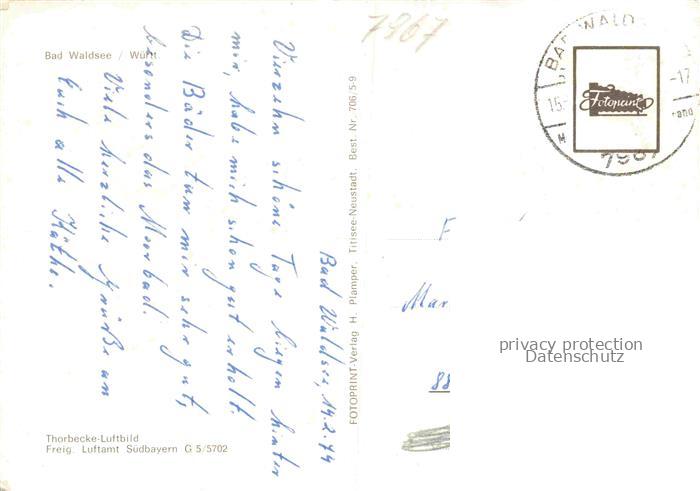 Bad Waldsee / Württ.
Bad Waldsee, 14.2.74
Vierzehn schöne Tage liegen hinter
mir, habe mich schon gut erholt.
Die Bäder tun mir sehr gut,
besonders das Moorbad.
Viele herzliche Grüße an
Euch alle Käthe.
Thorbecke-Luftbild
Freig. Luftamt Südbayern G 5/5702
FOTOPRINT-Verlag H. Plamper, Titisee-Neustadt, Best. Nr. 706/5-9
7967
BAD WALD
15.
-17
rand
Fotoprint
7967
F
Mar
88
privacy protection
Datenschutz